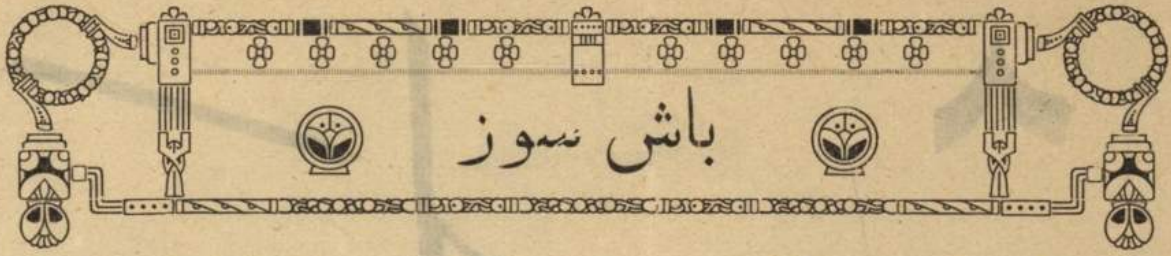 باش سوز